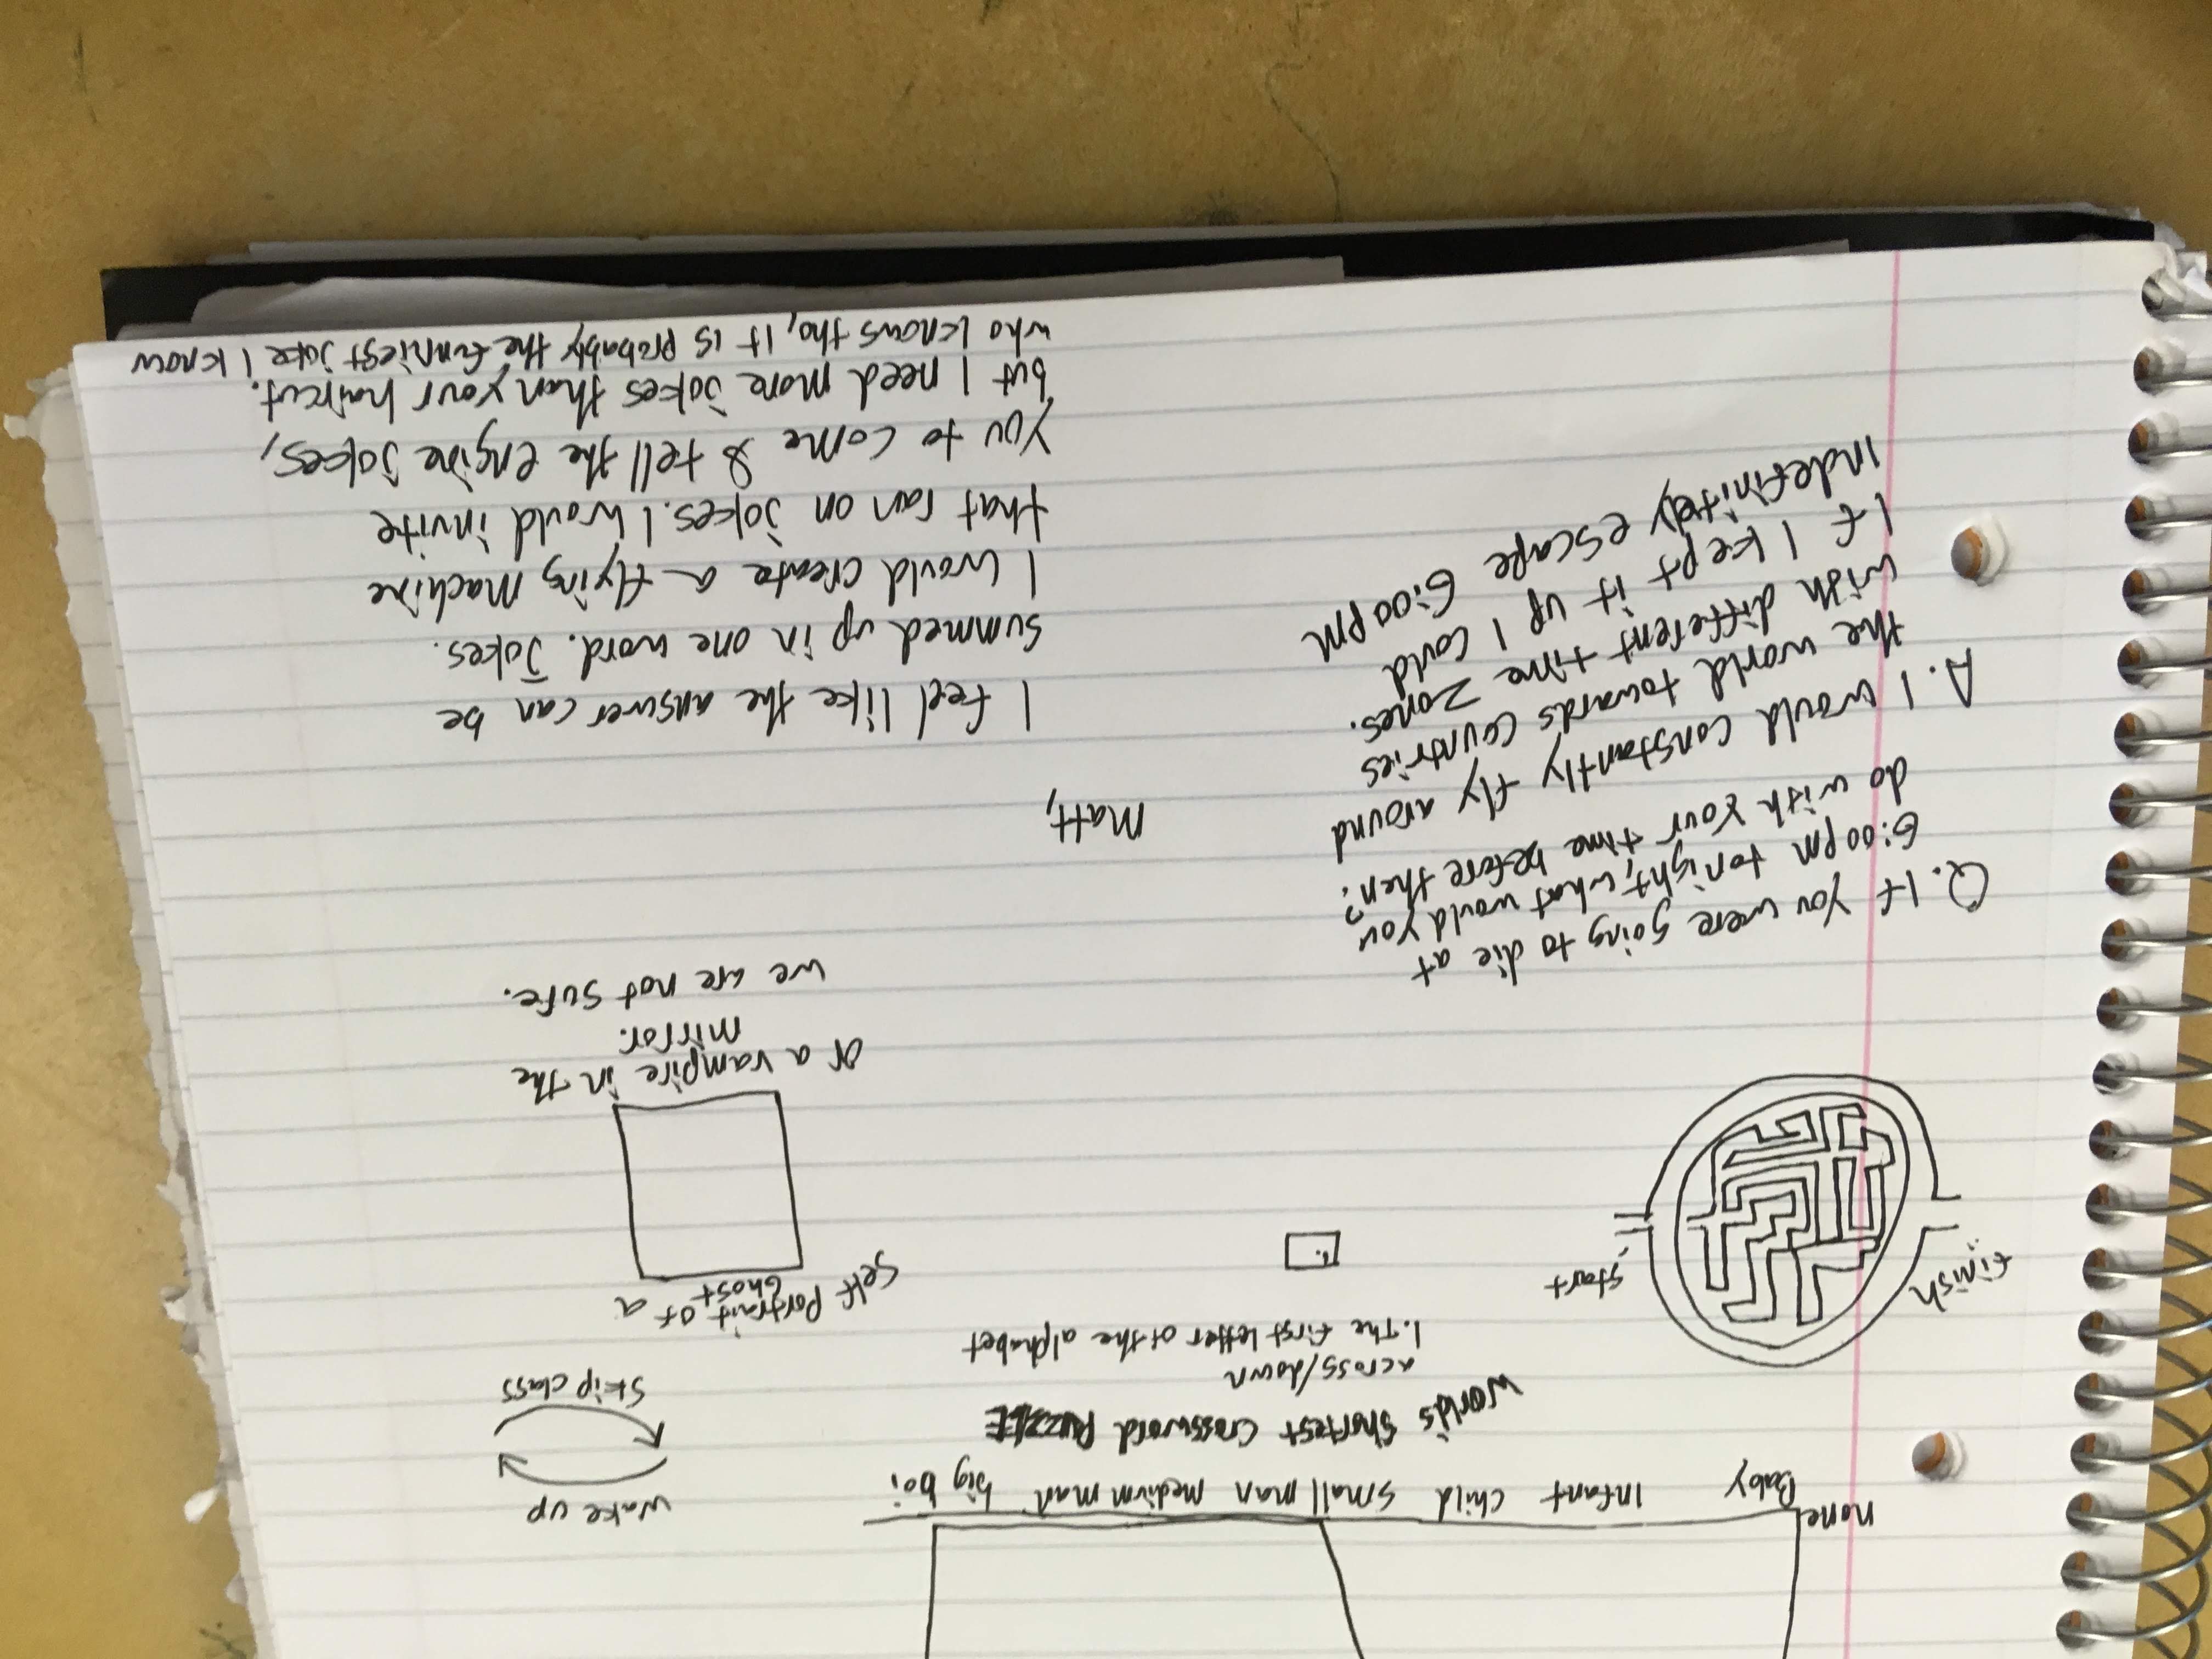 none
Baby Infant child small man medium man big boi
wake up
skip class
World's Shortest Crossword PUZZLE
across/down
1. The first letter of the alphabet
1.
finish
start
Self Portrait of a
Ghost
or a vampire in the
mirror.
we are not sure.
Q. If you were going to die at
6:00pm tonight, what would you
do with your time before then?
A. I would constantly fly around
the world towards countries
with different time zones.
If I kept it up I could
indefinitely escape 6:00pm
Matt,
I feel like the answer can be
summed up in one word. Jokes.
I would create a flying machine
that ran on jokes. I would invite
you to come & tell the engine jokes,
but I need more jokes than your haircut.
who knows tho, it is probably the funniest joke I know